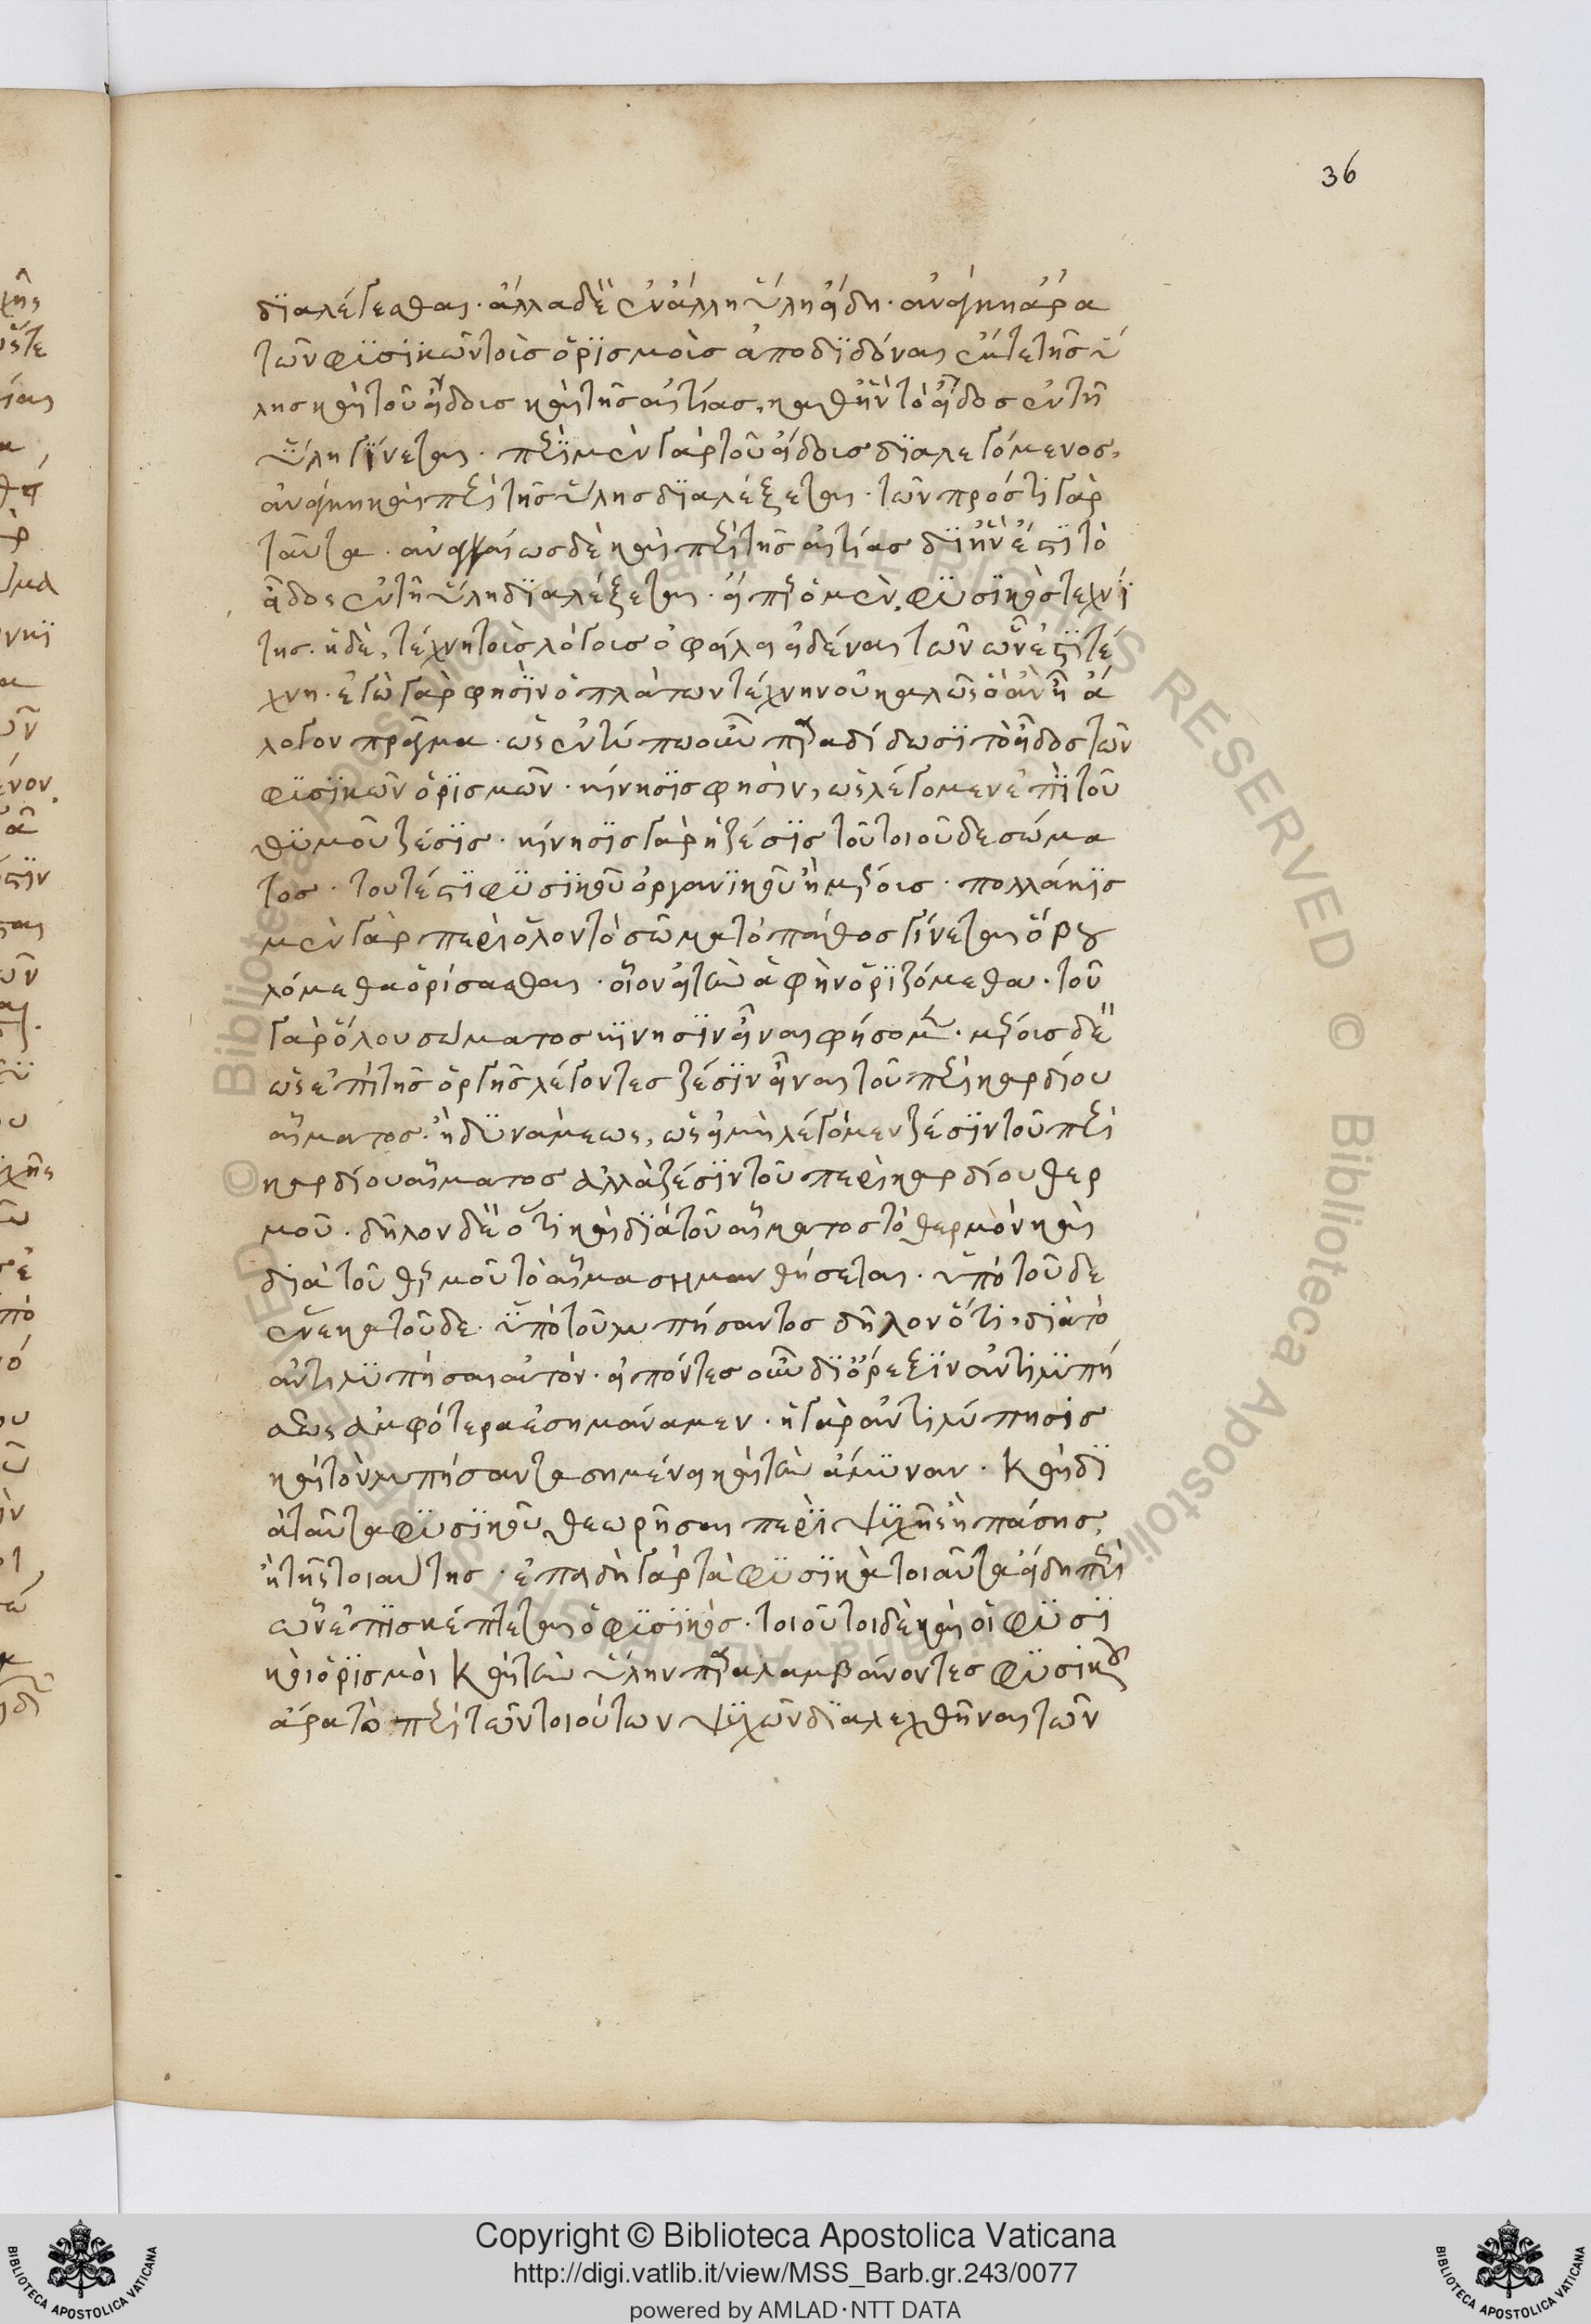 36
διαλέγεσθαι· ἄλλα δὲ ἐν ἄλλη ὕλη εἴδη· ἀνάγκη ἄρα
τῶν φυσικῶν τοῖς ὁρισμοῖς ἀποδιδόναι ἔκ τε τῆς ὕ
λης καὶ τοῦ εἴδους καὶ τῆς αἰτίας, καθ' ἣν τὸ εἶδος ἐν τῆ
ὕλη γίνεται· περὶ μὲν γὰρ τοῦ εἴδους διαλεγόμενος,
ἀνάγκη καὶ περὶ τῆς ὕλης διαλέξεται· τῶν πρός τι γὰρ
ταῦτα· ἀναγκαίως δὲ καὶ περὶ τῆς αἰτίας δι' ἣν ἐστὶ τὸ
εἶδος ἐν τῆ ὕλη διαλέξεται· εἴπερ ὁ μὲν φυσικὸς τεχνί
της· ἡ δὲ, τέχνη τοῖς λόγοις ὀφείλει εἰδέναι τῶν ὧν ἐστὶ τέ
χνη· ἐγὼ γὰρ φησὶν ὁ πλάτων τέχνην οὐ καλῶ ὃ ἂν ἦ ἄ
λογον πρᾶγμα· ὡς ἐν τύπω οὖν παραδίδωσι τὸ εἶδος τῶν
φυσικῶν ὁρισμῶν· κίνησις φησὶν, ὡς λέγομεν ἐπὶ τοῦ
θυμοῦ ζέσις· κίνησις γὰρ ἡ ζέσις τοῦ τοιοῦδε σώμα
τος· τουτέστι φυσικοῦ ὀργανικοῦ ἢ μέρους· πολλάκις
μὲν γὰρ περὶ ὅλον τὸ σῶμα τὸ πάθος γίνεται ὃ βου
λόμεθα ὁρίσασθαι· οἷον εἰ τὴν ἁφὴν ὁριζόμεθα· τοῦ
γὰρ ὅλου σώματος κίνησιν εἶναι φήσομεν· μέρους δὲ
ὡς ἐπὶ τῆς ὀργῆς λέγοντες ζέσιν εἶναι τοῦ περὶ καρδίου
αἵματος· ἢ δυνάμεως, ὡς εἰ μὴ λέγομεν ζέσιν τοῦ περὶ
καρδίου αἵματος ἀλλὰ ζέσιν τοῦ περὶ καρδίου θερ
μοῦ· δῆλον δὲ ὅτι καὶ διὰ τοῦ αἵματος τὸ θερμὸν καὶ
διὰ τοῦ θερμοῦ τὸ αἷμα σημανθήσεται· ὑπὸ τοῦδε
ἕνεκα τοῦδε· ὑπὸ τοῦ λυπήσαντος δῆλον ὅτι, διὰ τὸ
ἀντιλυπῆσαι αὐτόν· εἰπόντες οὖν δι' ὄρεξιν ἀντιλυπή
σεως ἀμφότερα ἐσημάναμεν· ἡ γὰρ ἀντιλύπησις
καὶ τὸν λυπήσαντα σημαίνει καὶ τὴν ἄμυναν· Καὶ δι
ὰ ταῦτα φυσικοῦ θεωρῆσαι περὶ ψυχῆς ἢ πάσης,
ἢ τῆς τοιαύτης· ἐπειδὴ γὰρ τὰ φυσικὰ τοιαῦτα εἴδη περὶ
ὧν ἐπισκέπτεται ὁ φυσικὸς· τοιοῦτοι δὲ καὶ οἱ φυσι
κοὶ ὁρισμοὶ Καὶ τὴν ὕλην παραλαμβάνοντες φυσικοῦ
ἄρα τὸ περὶ τῶν τοιούτων ψυχῶν διαλεχθῆναι τῶν
Copyright © Biblioteca Apostolica Vaticana
http://digi.vatlib.it/view/MSS_Barb.gr.243/0077
powered by AMLAD·NTT DATA